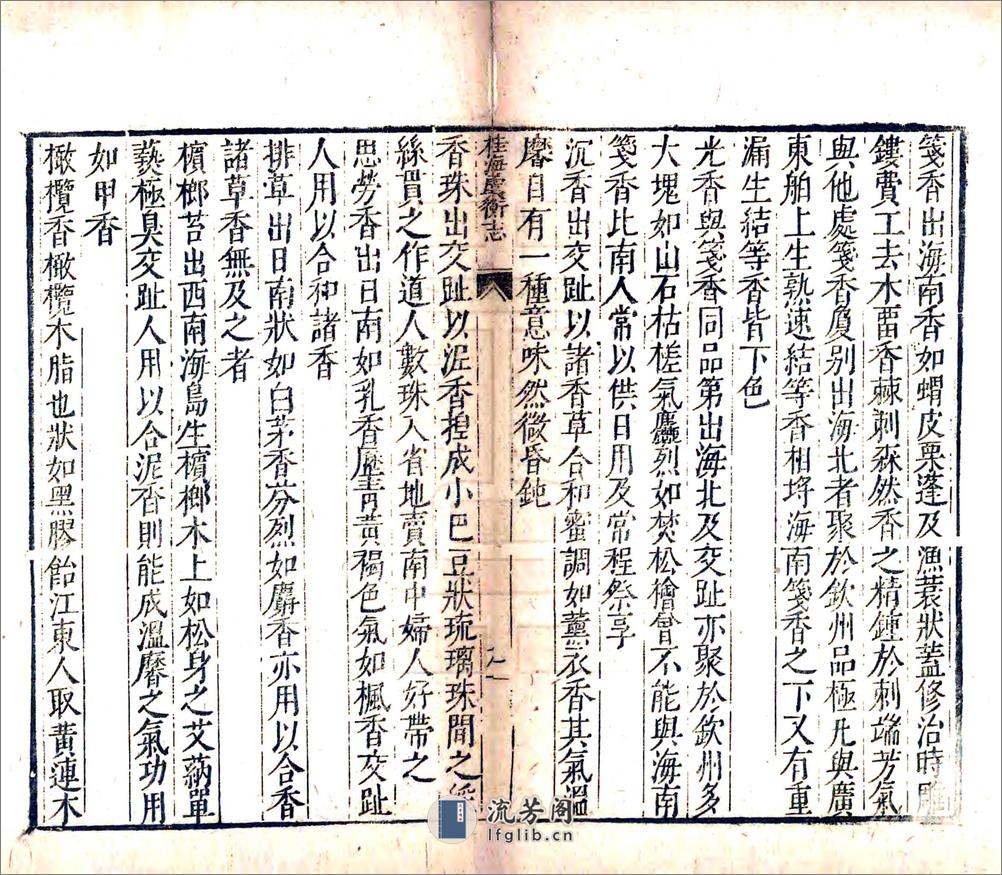 箋香出海南香如蝟皮栗蓬及漁蓑狀蓋修治時雕
鏤費工去木畱香棘刺森然香之精鍾於刺端芳氣
與他處箋香敻別出海北者聚於欽州品極凡與廣
東舶上生熟速結等香相埒海南箋香之下又有重
漏生結等香皆下色
光香與箋香同品第出海北及交趾亦聚於欽州多
大塊如山石枯槎氣麤烈如焚松檜曾不能與海南
箋香比南人常以供日用及常程祭享
沉香出交趾以諸香草合和蜜調如薰衣香其氣溫
黁自有一種意味然微昏鈍
桂海虞衡志
香珠出交趾以泥香揑成小巴豆狀琉璃珠間之綵
絲貫之作道人數珠入省地賣南中婦人好帶之
思勞香出日南如乳香瀝青黃褐色氣如楓香交趾
人用以合和諸香
排草出日南狀如白茅香芬烈如麝香亦用以合香
諸草香無及之者
檳榔苔出西南海島生檳榔木上如松身之艾蒳單
爇極臭交趾人用以合泥香則能成溫黁之氣功用
如甲香
橄欖香橄欖木脂也狀如黑膠飴江東人取黃連木
流芳阁
lfglib.cn